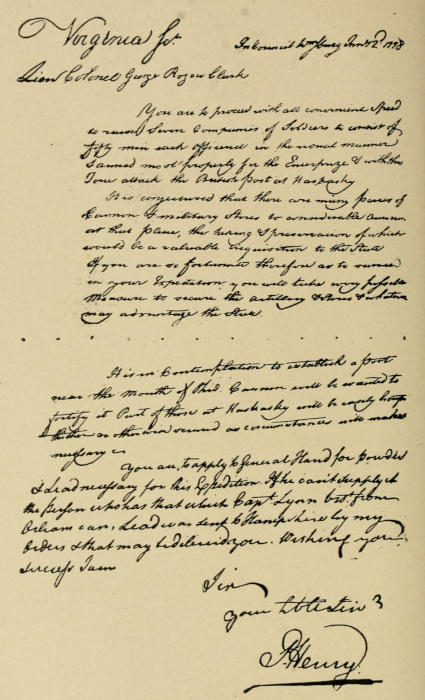 Virginia Sct.
In Council Wmsburg Jany 2d 1778
Lieu Colonel George Rogers Clark
You are to proceed with all convenient Speed
to raise Seven Companies of Soldiers to consist of
fifty men each officered in the usual manner
& armed most properly for the Enterprize & with this
Force attack the British post at Kaskasky
It is conjectured that there are many pieces of
Cannon & military Stores to considerable amount
at that place, the taking & preservation of which
would be a valuable acquisition to the State
If you are so fortunate therefore as to succeed
in your Expedition, you will take every possible
Measure to secure the artillery & stores & whatever
may advantage the State.
It is in Contemplation to establish a post
near the Mouth of Ohio. Cannon will be wanted to
fortify it Part of those at Kaskasky will be easily brought
thither or otherwise secured as circumstances will make
necessary
You are to apply to General Hand for powder
& Lead necessary for this Expedition. If he can't supply it
the person who has that which Capt Lynn bot. from
Orleans can. Lead was sent to Hampshire by my
Orders & that may be delivered you. Wishing you
success I am
Sir
your hble Serv
P. Henry